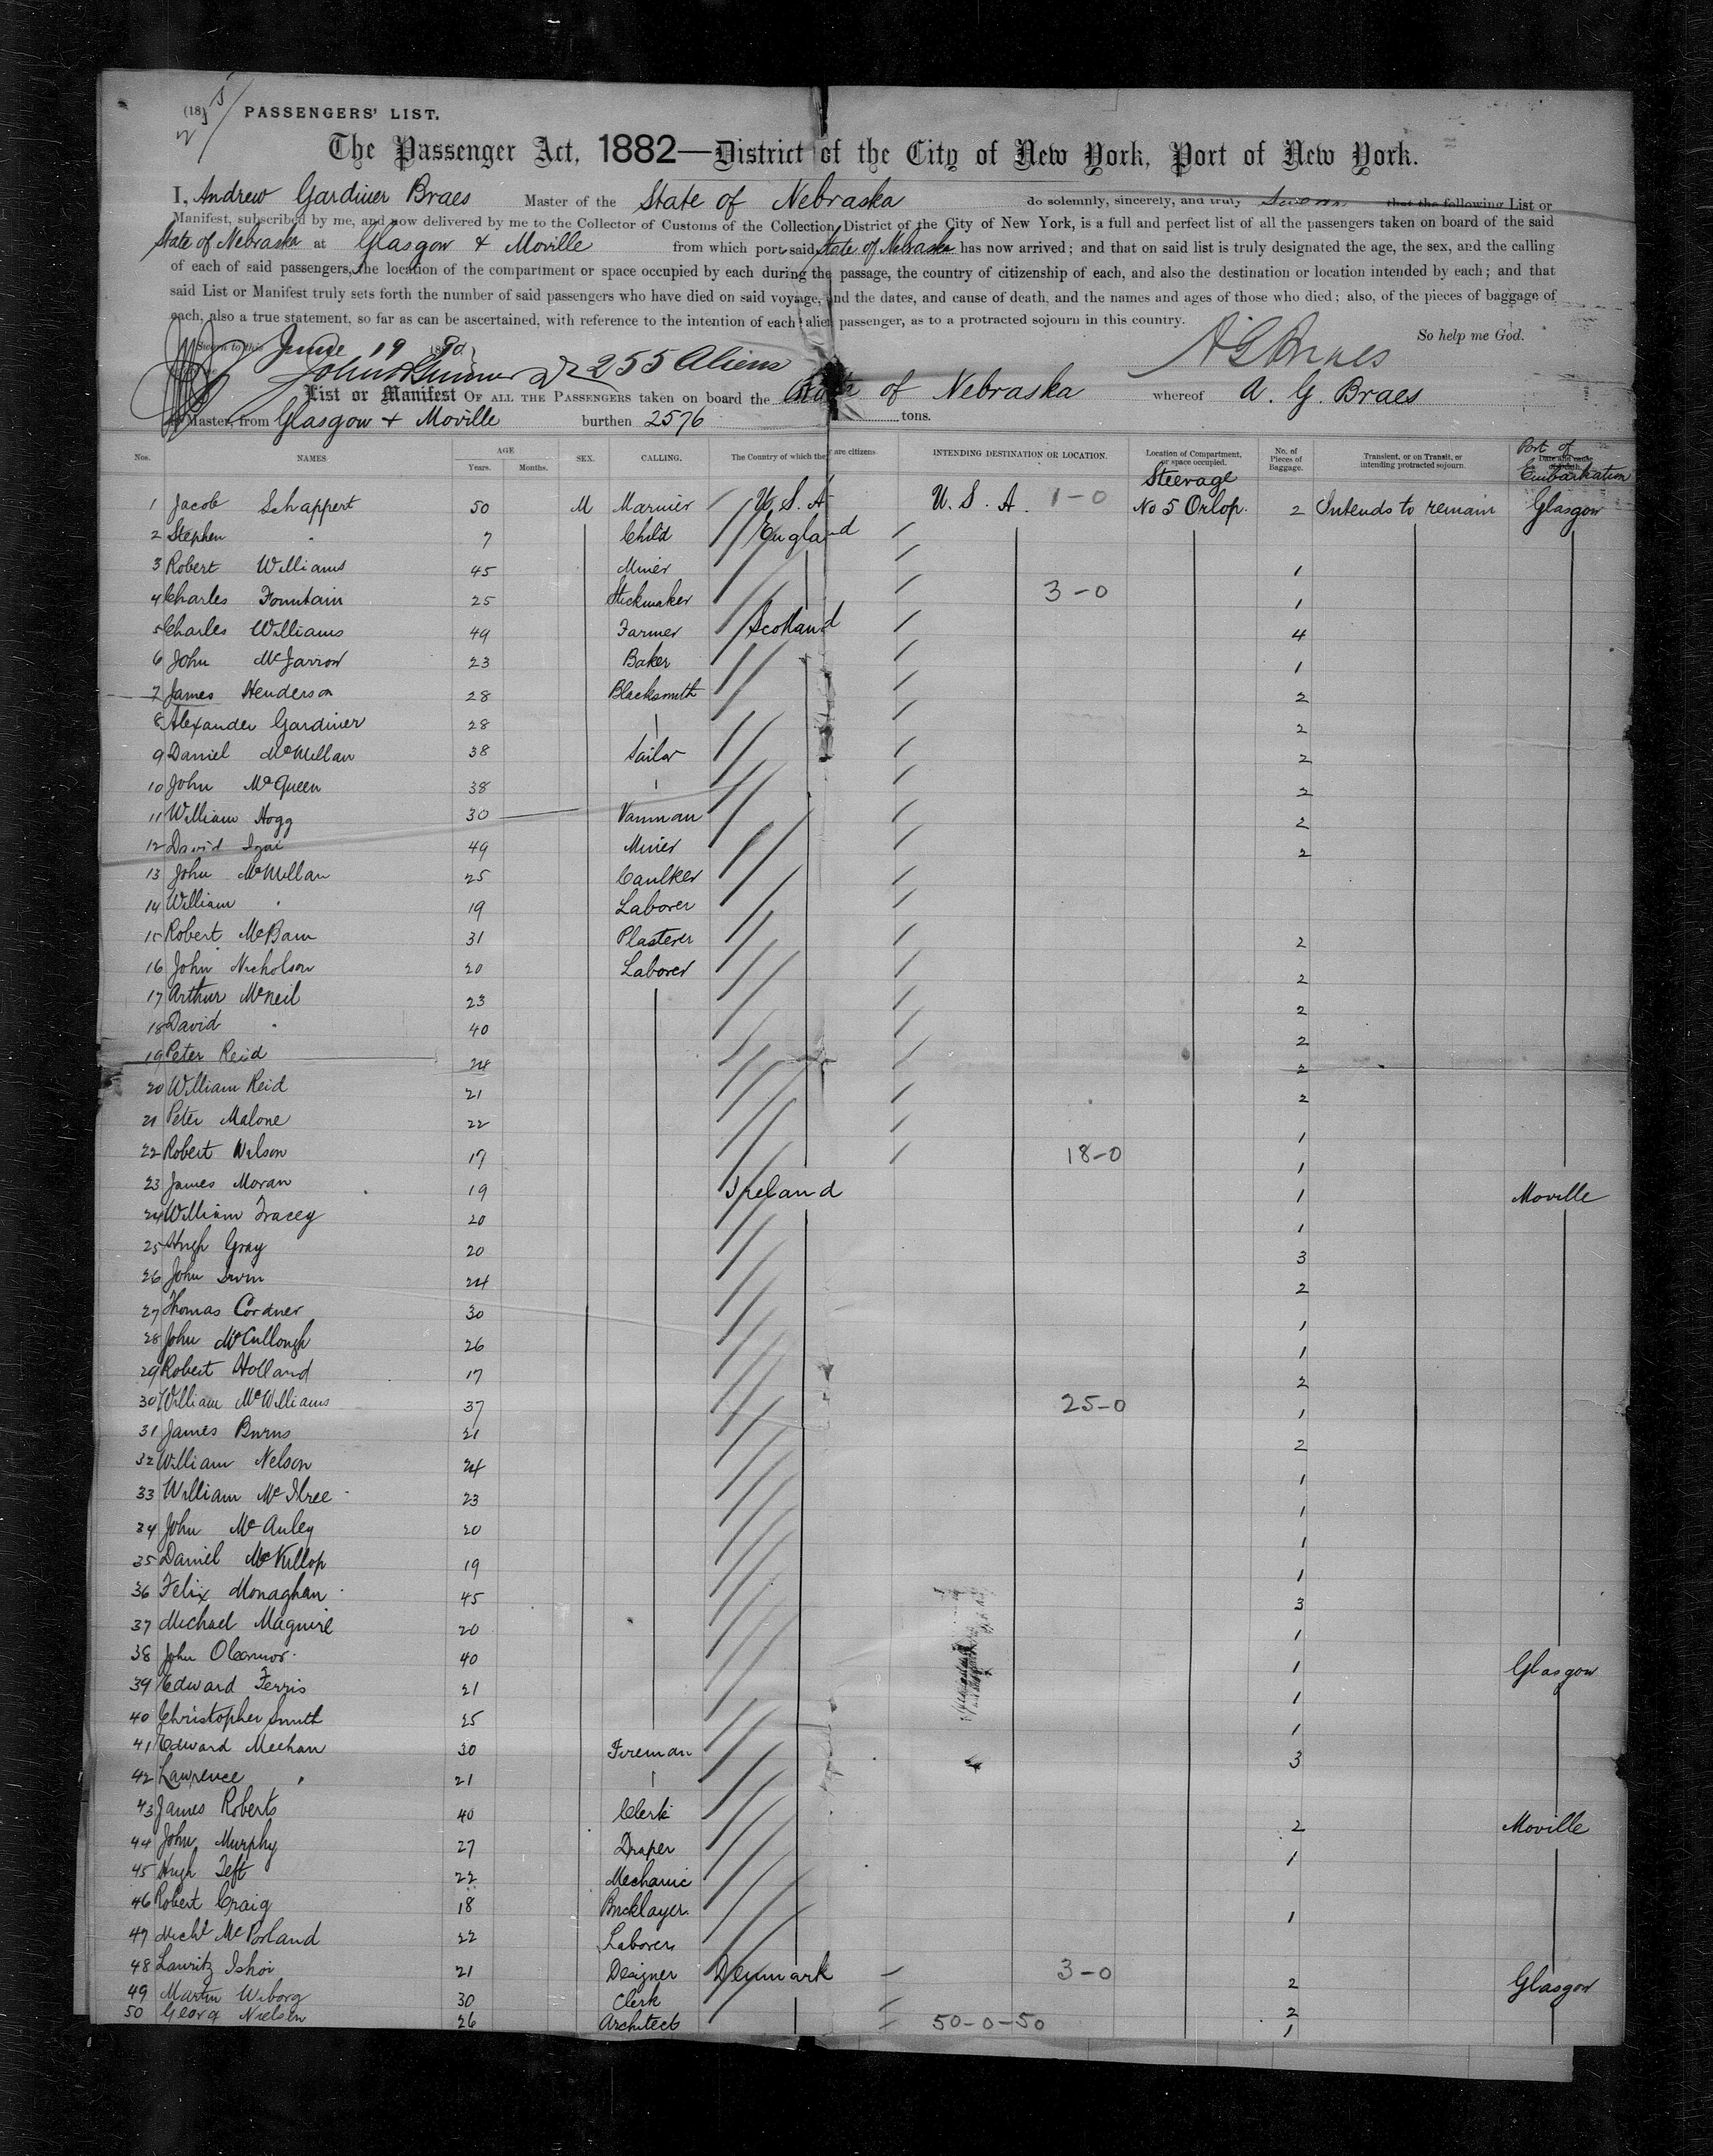 (18) PASSENGERS' LIST.
The Passenger Act, 1882—District of the City of New York, Port of New York.
I, Andrew Gardiner Braes Master of the State of Nebraska do solemnly, sincerely, and truly that the following List or
Manifest, subscribed by me, and now delivered by me to the Collector of Customs of the Collection District of the City of New York, is a full and perfect list of all the passengers taken on board of the said
State of Nebraska at Glasgow & Moville from which port said State of Nebraska has now arrived; and that on said list is truly designated the age, the sex, and the calling
of each of said passengers, the location of the compartment or space occupied by each during the passage, the country of citizenship of each, and also the destination or location intended by each; and that
said List or Manifest truly sets forth the number of said passengers who have died on said voyage, and the dates, and cause of death, and the names and ages of those who died; also, of the pieces of baggage of
each, also a true statement, so far as can be ascertained, with reference to the intention of each alien passenger, as to a protracted sojourn in this country.
So help me God.
Sworn to this June 19 1890
A G Braes
255 Aliens
List or Manifest OF ALL THE PASSENGERS taken on board the State of Nebraska whereof A. G. Braes
Master, from Glasgow + Moville burthen 2576 tons.
Nos. NAMES AGE Years. Months. SEX. CALLING. The Country of which they are citizens. INTENDING DESTINATION OR LOCATION. Location of Compartment, or space occupied. No. of Pieces of Baggage. Transient, or on Transit, or intending protracted sojourn. Port of Embarkation
Steerage
1 Jacob Schappert 50 M Marnier U. S. A U. S. A. 1-0 No 5 Orlop. 2 Intends to remain Glasgow
2 Stephen " 7 Child England
3 Robert Williams 45 Miner 1
4 Charles Fountain 25 Stickmaker 3-0 1
5 Charles Williams 49 Farmer Scotland 4
6 John McJarrow 23 Baker 1
7 James Henderson 28 Blacksmith 2
8 Alexander Gardiner 28 2
9 Daniel McMillan 38 Sailor 2
10 John McQueen 38 2
11 William Hogg 30 Vanman 2
12 David 49 Miner 2
13 John McMillan 25 Caulker
14 William " 19 Laborer
15 Robert McBain 31 Plasterer 2
16 John Nicholson 20 Laborer 2
17 Arthur McNeil 23 2
18 David " 40 2
19 Peter Reid 24 2
20 William Reid 21 2
21 Peter Malone 22 1
22 Robert Wilson 17 18-0 1
23 James Moran 19 Ireland 1 Moville
24 William Tracey 20 1
25 Hugh Gray 20 3
26 John Irvin 24 2
27 Thomas Cordner 30 1
28 John McCullough 26 1
29 Robert Holland 17 2
30 William McWilliams 37 25-0 1
31 James Burns 21 2
32 William Nelson 24 1
33 William McIlree 23 1
34 John McAuley 20 1
35 Daniel McKillop 19 1
36 Felix Monaghan 45 3
37 Michael Maguire 20 1
38 John OConnor 40 1 Glasgow
39 Edward Ferris 21 1
40 Christopher Smith 25 1
41 Edward Meehan 30 Fireman 3
42 Lawrence " 21
43 James Roberts 40 Clerk 2 Moville
44 John Murphy 27 Draper 1
45 Hugh Teft 22 Mechanic
46 Robert Craig 18 Bricklayer 1
47 Michl McPorland 22 Laborer
48 Lauritz Ishoi 21 Designer Denmark 3-0 2 Glasgow
49 Martin Wiborg 30 Clerk 2
50 Georg Nielsen 26 Architect 50-0-50 1